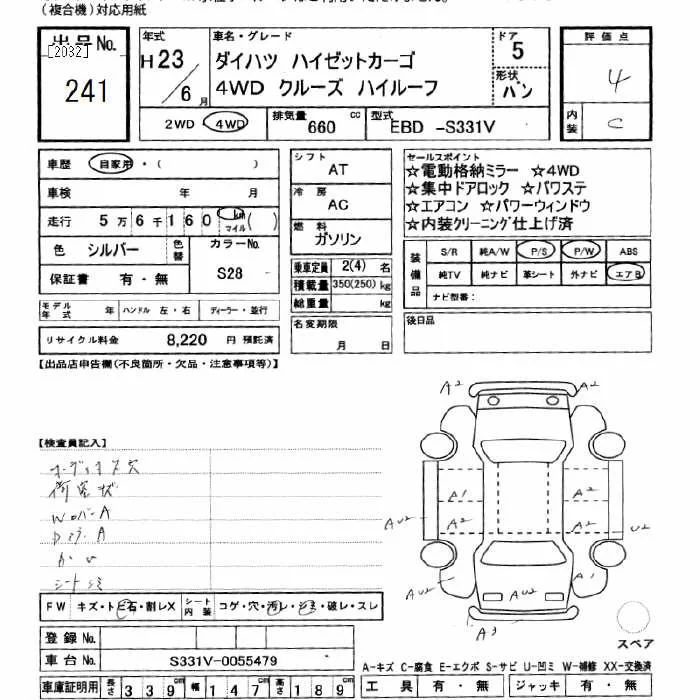 (複合機)対応用紙
出品No.
[2032]
241
年式
H23/6月
車名・グレード
ダイハツ ハイゼットカーゴ
4WD クルーズ ハイルーフ
ドア
5
形状
バン
評価点
4
内装
C
2WD 4WD
排気量 660 cc
型式 EBD -S331V
車歴 自家用・( )
車検 年 月
走行 5万6千160 km マイル( )
色 シルバー
色替
カラーNo.
S28
保証書 有・無
シフト
AT
冷房
AC
燃料
ガソリン
乗車定員 2(4)名
積載量 350(250)kg
総重量 kg
セールスポイント
☆電動格納ミラー ☆4WD
☆集中ドアロック ☆パワステ
☆エアコン ☆パワーウィンドウ
☆内装クリーニング仕上げ済
装備品
S/R 純A/W P/S P/W ABS
純TV 純ナビ 革シート 外ナビ エアB
ナビ型番:
モデル年式 年 ハンドル 左・右 ディーラー・並行
名変期限
月 日
後日品
リサイクル料金 8,220 円 預託済
【出品店申告欄(不良箇所・欠品・注意事項等)】
【検査員記入】
W A
A
シート
A2 A2
A1 A2
A2 A2
AU2 U2
AU2 AU2 A1
A3
FW キズ・トビ石・割レX
シート内装 コゲ・穴・汚レ・シミ・破レ・スレ
スペア
登録No.
車台No. S331V-0055479
A-キズ C-腐食 E-エクボ S-サビ U-凹ミ W-補修 XX-交換済
車庫証明用 長さ 339cm 幅 147cm 高さ 189cm
工具 有・無 ジャッキ 有・無